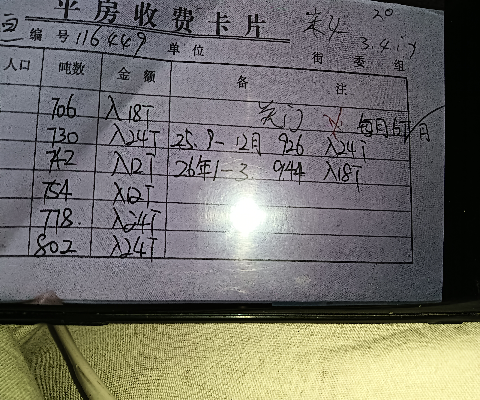 平房收费卡片
编号 116449 单位 街 委 组
人口 吨数 金额 备注
706 入18T 关门 每月5T
730 入24T 25.9-12月 926 入24T
742 入12T 26年1-3 944 入18T
754 入12T
778 入24T
802 入24T